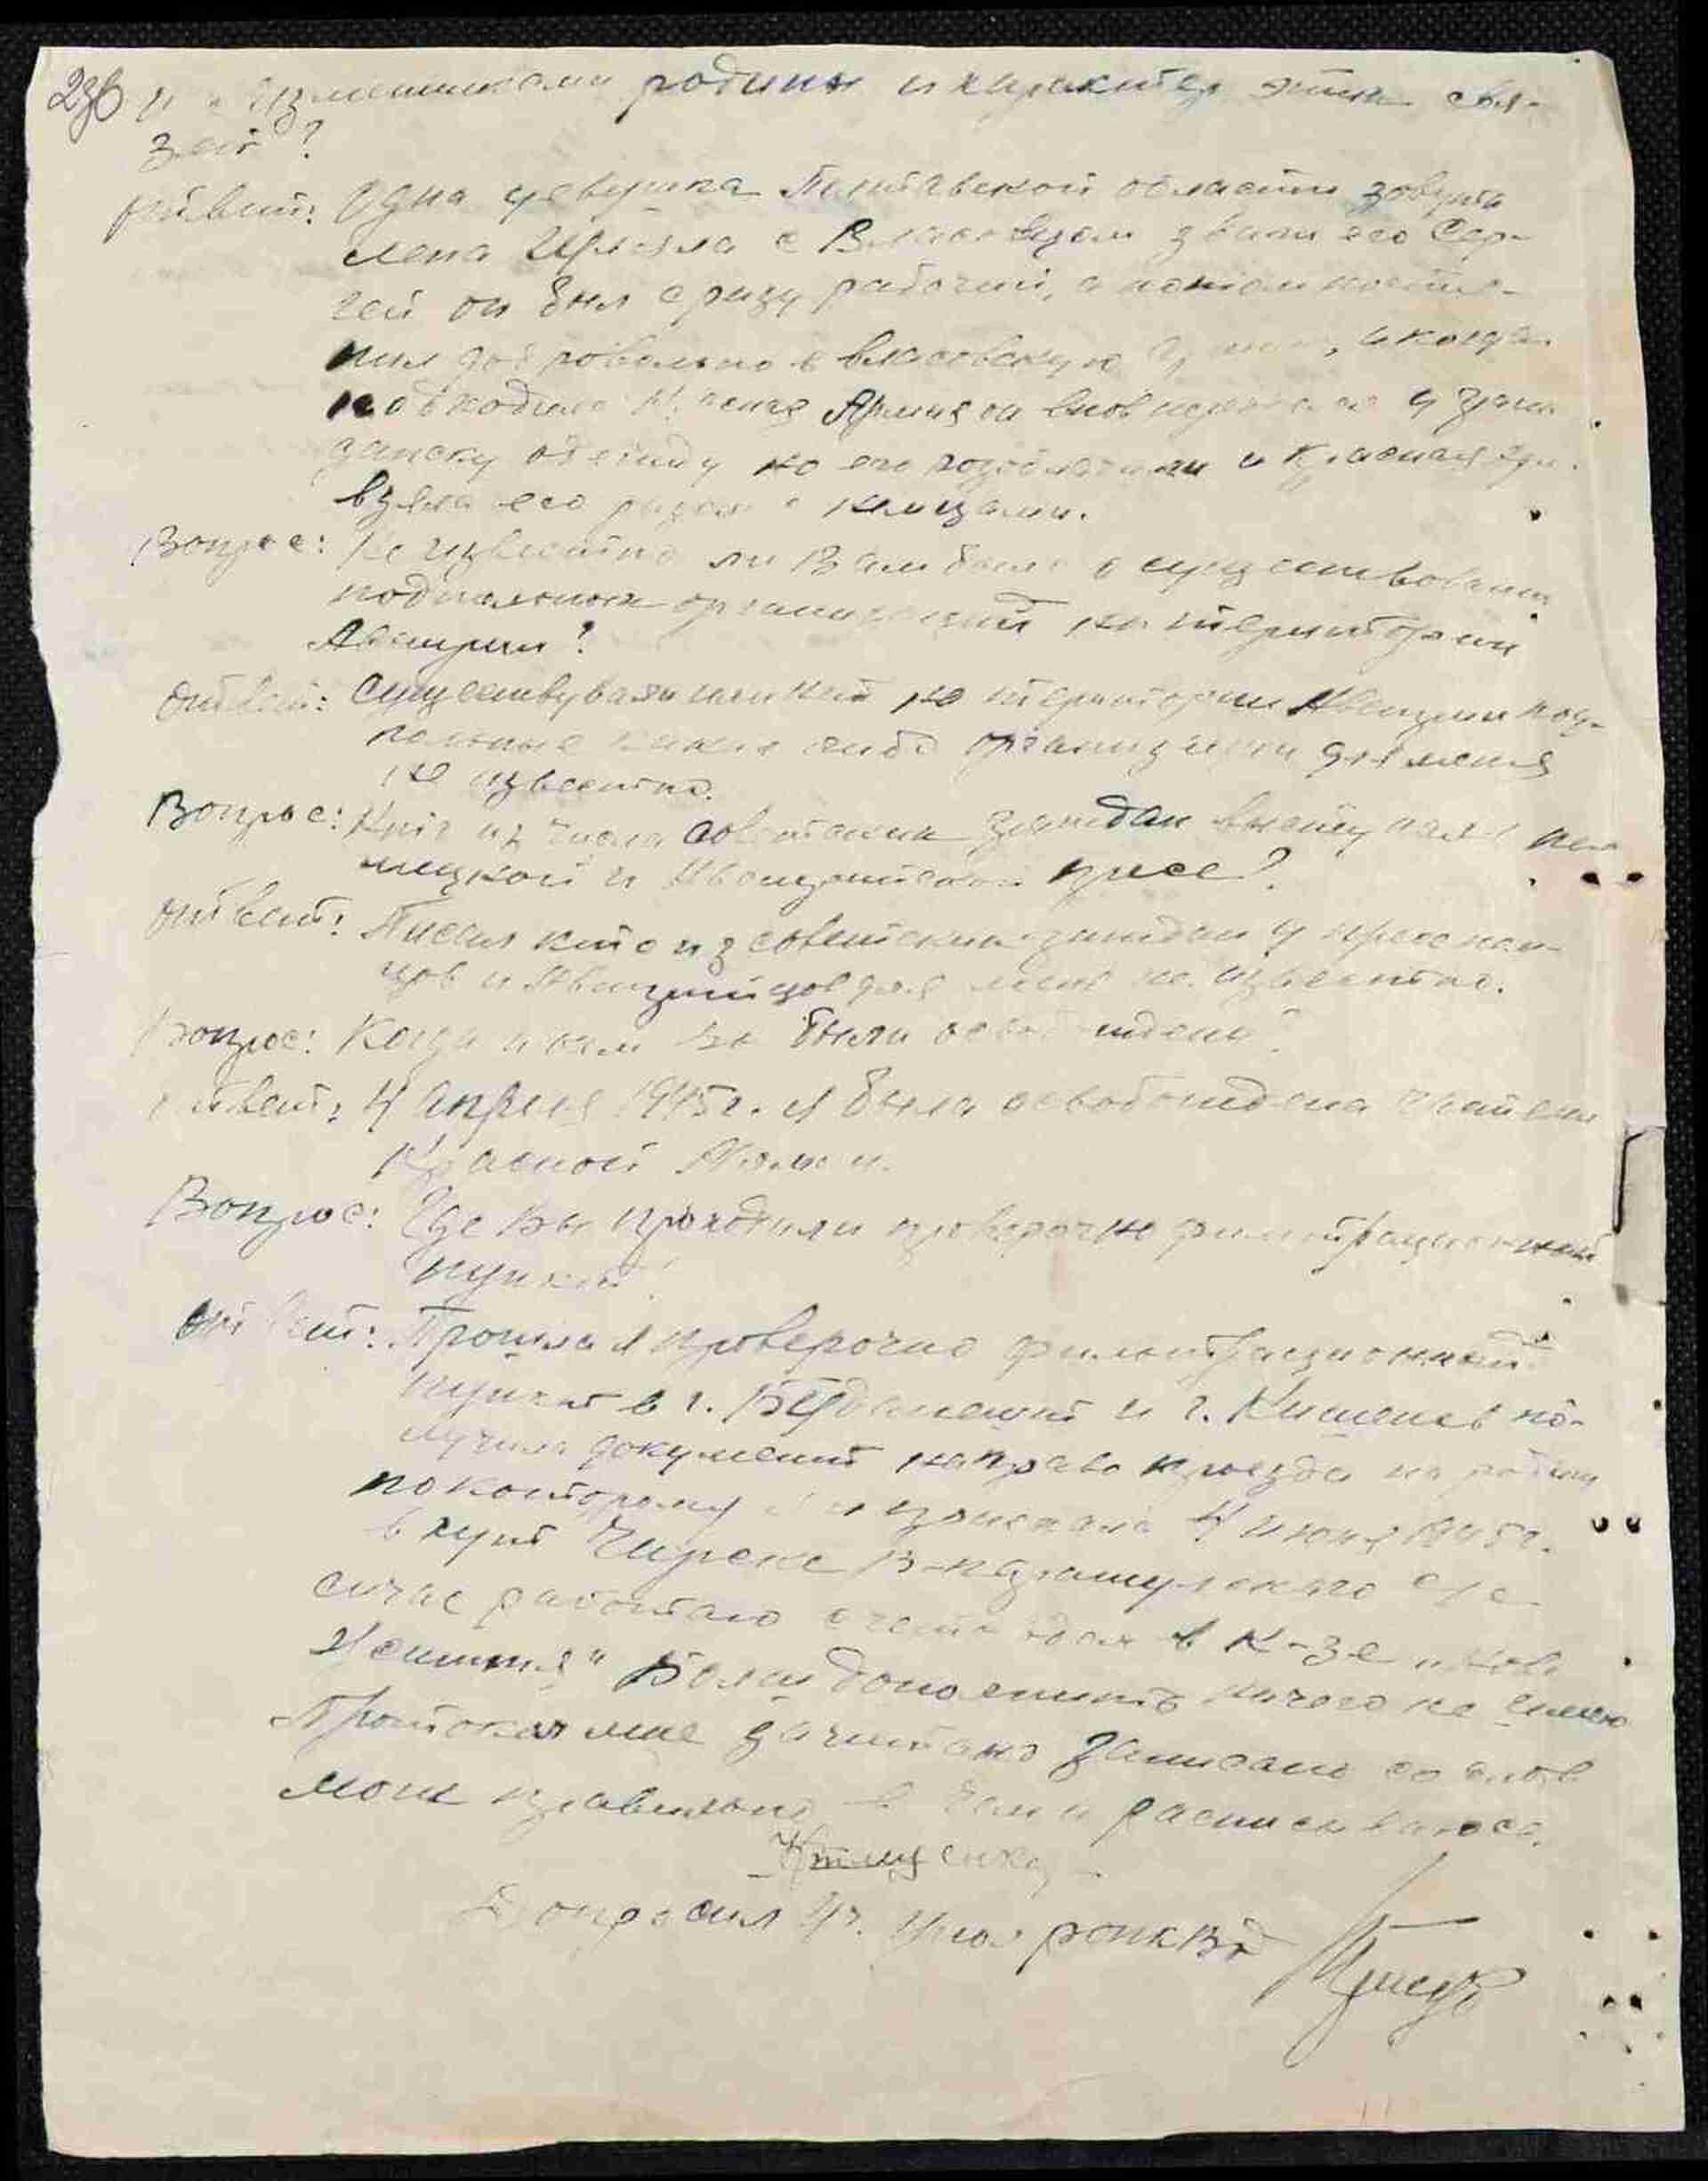 изменниками родины и характер этих свя-
зей?
Ответ: Одна девушка Полтавской области зовут
Лена с Власовцом звали его Сер-
гей он был сразу рабочий, а потом посту-
пил добровольно в власовскую и когда
подходила Армия он вновь в граж
данску одежду но его и Красная
взяла его с немцами.
Вопрос: Не известно ли Вам было о существовании
подпольных организаций на територории
Австрии?
Ответ: Существували или нет на територии Австрии под-
польные какие либо организации для меня
не известно.
Вопрос: Кто из числа советских граждан выступал в не-
мецкой и Австрийской пресе?
Ответ: Писал кто из советских граждан у пресе нем-
цов и Австрийцов для меня не известно.
Вопрос: Когда и кем вы были освобождены?
Ответ: 4 апреля 1945 г. я была освобождена частями
Красной Армии.
Вопрос: Где Вы проходили проверочно фильтрационный
пункт?
Ответ: Прошла я проверочно фильтрационный
пункт в г. Будапешт и г. Кишенев по-
лучила документ направо проезда на родину
по которому я и приехала 4 июня 1945 г.
в
сичас работаю в к-зе "Нове
Життя" Более дополнить ничего не имею
Протокол мне зачитано записано со слов
моих правильно в чем и расписываюсь.
Допросил Уч. Упол РОНКВД